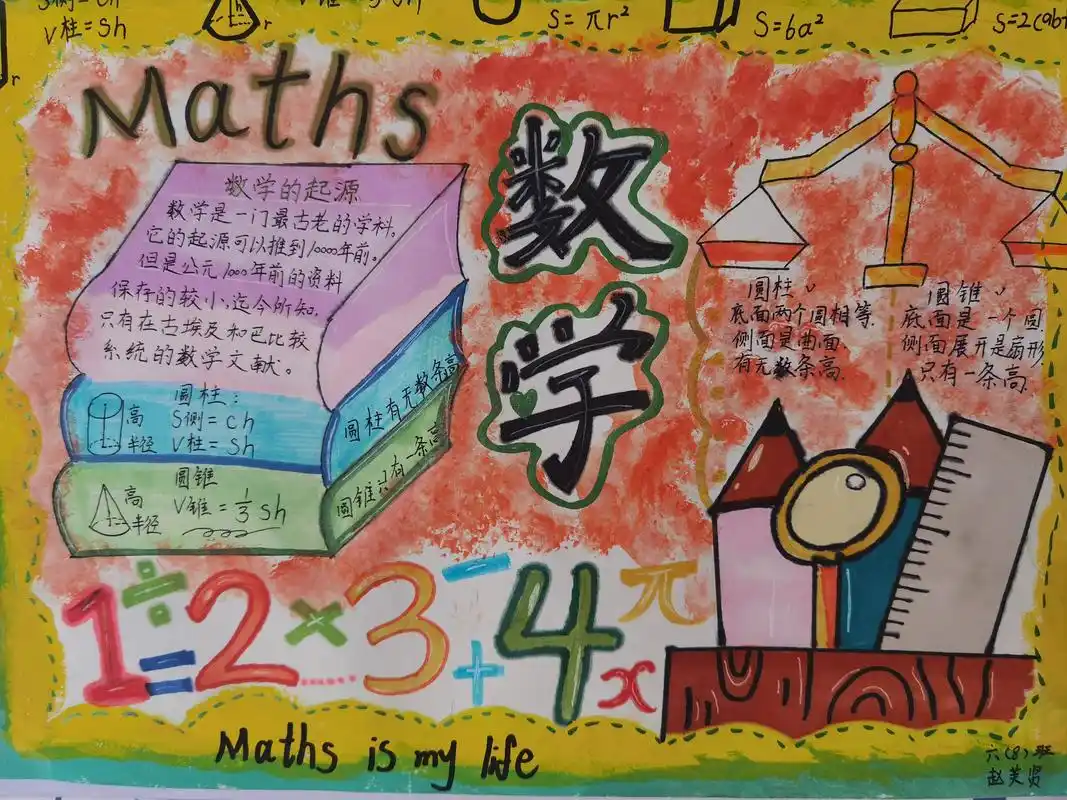 V柱=Sh
r
r
S=πr²
S=6a²
Maths
数学
数学的起源
数学是一门最古老的学科,
它的起源可以推到10000年前,
但是公元1000年前的资料
保存的较小,迄今所知,
只有在古埃及和巴比较
系统的数学文献。
高
半径
圆柱:
S侧=ch
V柱=Sh
圆柱有无数条高
高
半径
圆锥
V锥=1/3 Sh
圆锥只有一条高
圆柱
底面两个圆相等.
侧面是曲面.
有无数条高.
圆锥
底面是一个圆
侧面展开是扇形
只有一条高.
1÷=2×3-+4πx
Maths is my life
六(8)班